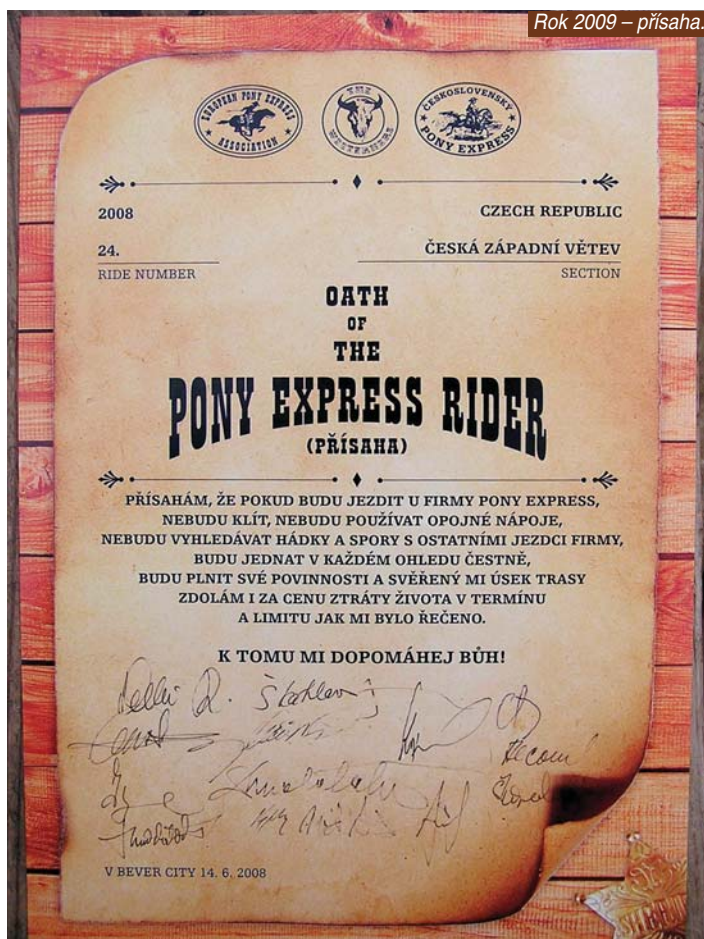 Rok 2009 – přísaha.
EUROPEAN PONY EXPRESS
ASSOCIATION
THE
WESTERNERS
ČESKOSLOVENSKÝ
PONY EXPRESS
2008
CZECH REPUBLIC
24.
ČESKÁ ZÁPADNÍ VĚTEV
RIDE NUMBER
SECTION
OATH
OF
THE
PONY EXPRESS RIDER
(PŘÍSAHA)
PŘÍSAHÁM, ŽE POKUD BUDU JEZDIT U FIRMY PONY EXPRESS,
NEBUDU KLÍT, NEBUDU POUŽÍVAT OPOJNÉ NÁPOJE,
NEBUDU VYHLEDÁVAT HÁDKY A SPORY S OSTATNÍMI JEZDCI FIRMY,
BUDU JEDNAT V KAŽDÉM OHLEDU ČESTNĚ,
BUDU PLNIT SVÉ POVINNOSTI A SVĚŘENÝ MI ÚSEK TRASY
ZDOLÁM I ZA CENU ZTRÁTY ŽIVOTA V TERMÍNU
A LIMITU JAK MI BYLO ŘEČENO.
K TOMU MI DOPOMÁHEJ BŮH!
V BEVER CITY 14. 6. 2008